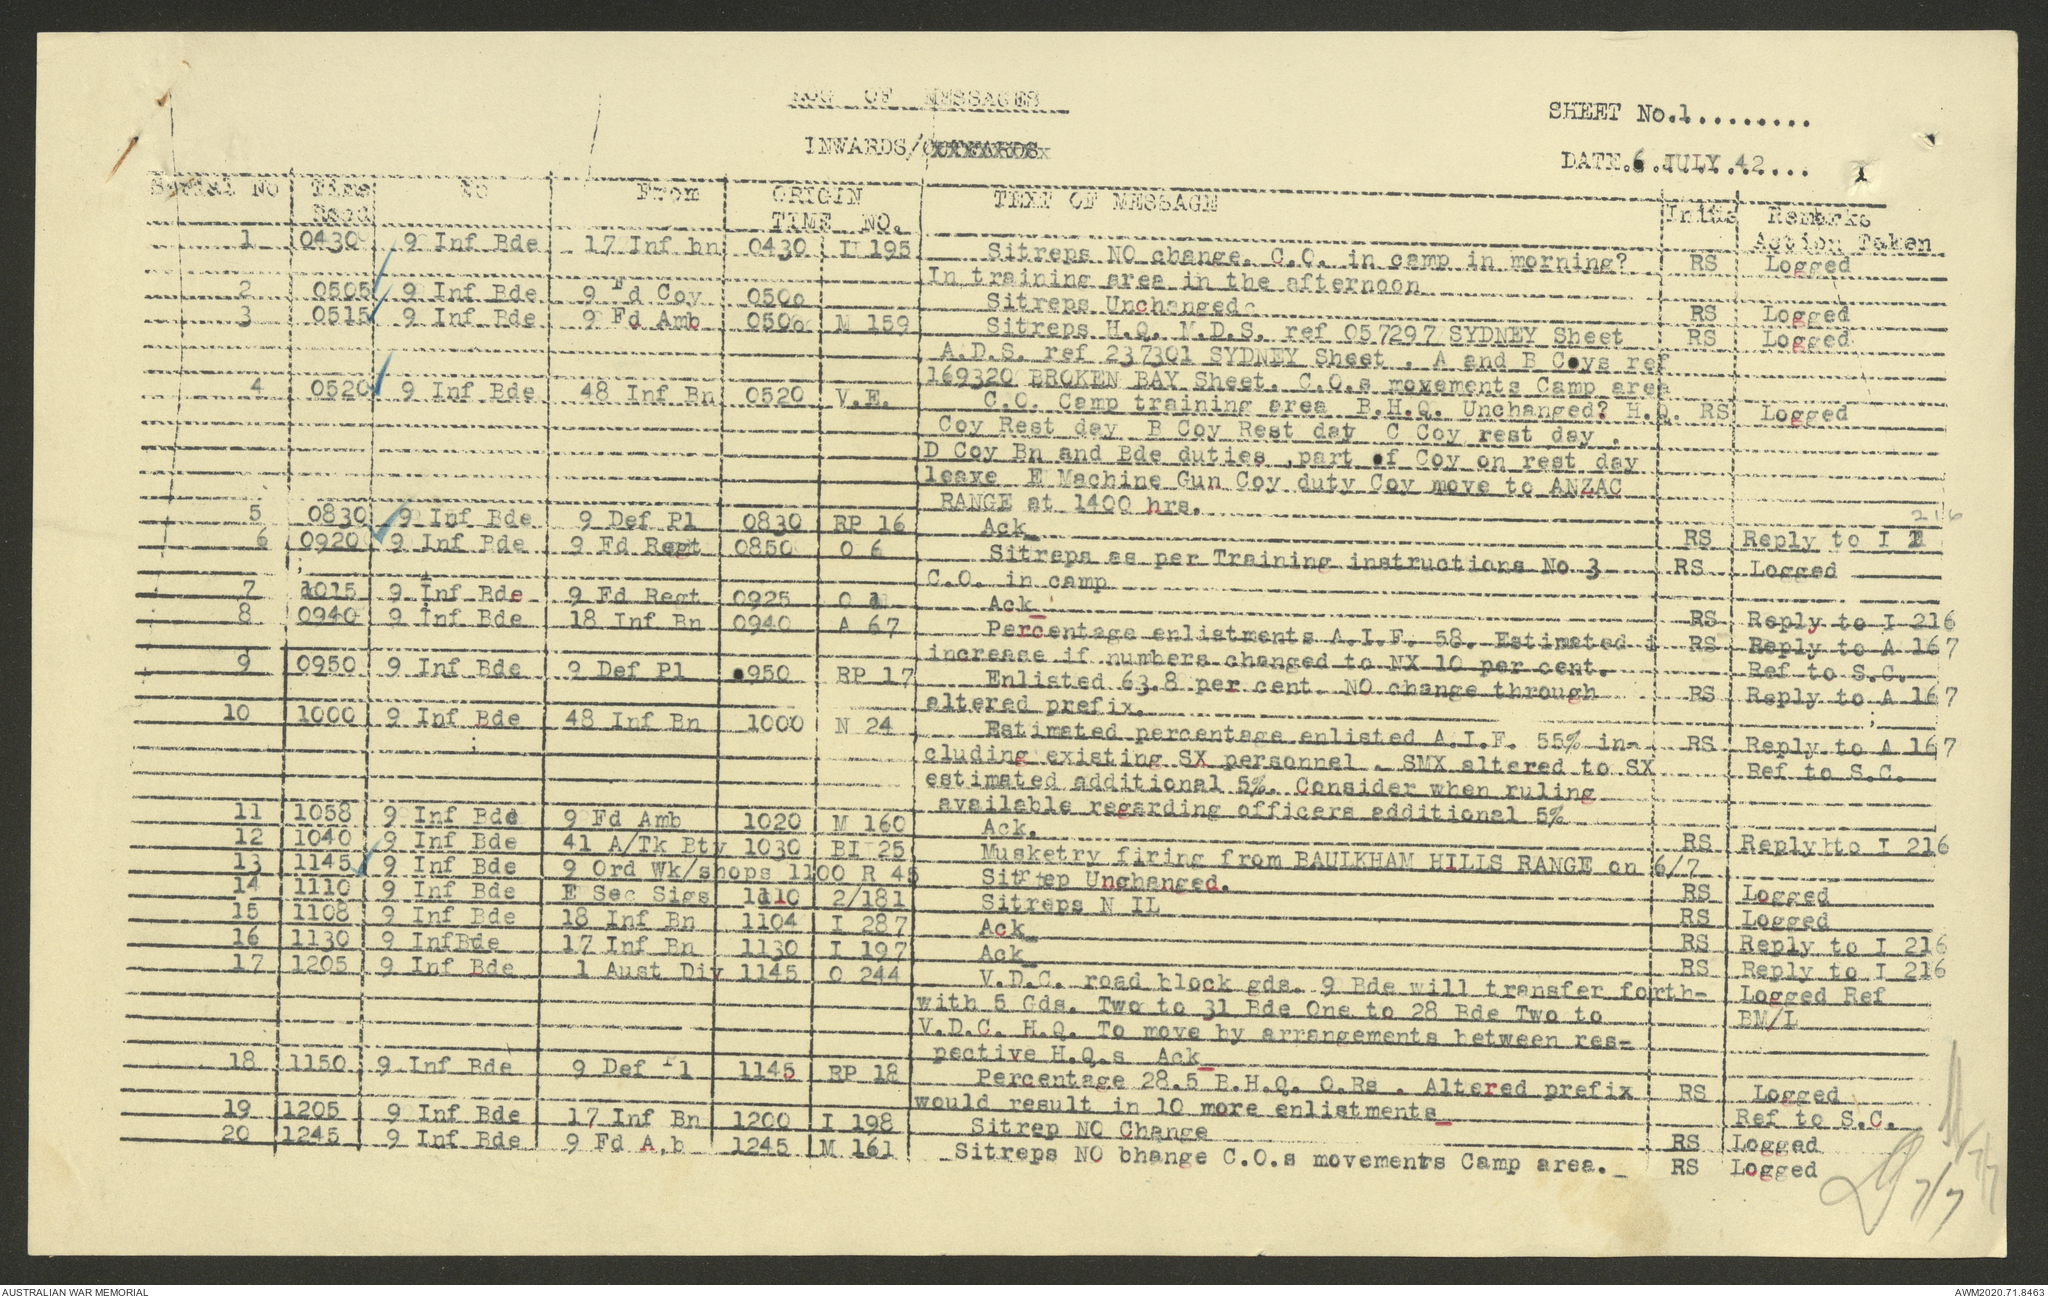 LOG OF MESSAGES
SHEET No.1.........
INWARDS/OUTWARDS
DATE.6.JULY.42...
Serial No Time To From ORIGIN TEXT OF MESSAGE Initls Remarks
Recd TIME NO. Action Taken
1 0430 9 Inf Bde 17 Inf bn 0430 I 195 Sitreps NO change. C.O. in camp in morning? RS Logged
In training area in the afternoon
2 0505 9 Inf Bde 9 Fd Coy 0500 Sitreps Unchanged RS Logged
3 0515 9 Inf Bde 9 Fd Amb 0500 M 159 Sitreps H.Q. M.D.S. ref 057297 SYDNEY Sheet RS Logged
A.D.S. ref 237301 SYDNEY Sheet . A and B Coys ref
169320 BROKEN BAY Sheet. C.O.s movements Camp area
4 0520 9 Inf Bde 48 Inf Bn 0520 V.E. C.O. Camp training area B.H.Q. Unchanged? H.Q. RS Logged
Coy Rest day B Coy Rest day C Coy rest day .
D Coy Bn and Bde duties ,part of Coy on rest day
leave E Machine Gun Coy duty Coy move to ANZAC
RANGE at 1400 hrs.
5 0830 9 Inf Bde 9 Def Pl 0830 RP 16 Ack RS Reply to I 216
6 0920 9 Inf Bde 9 Fd Regt 0850 O 6 Sitreps as per Training instructions No 3 RS Logged
C.O. in camp
7 1015 9 Inf Bde 9 Fd Regt 0925 O 1 Ack RS Reply to I 216
8 0940 9 Inf Bde 18 Inf Bn 0940 A 67 Percentage enlistments A.I.F. 58. Estimated i RS Reply to A 167
increase if numbers changed to NX 10 per cent. Ref to S.C.
9 0950 9 Inf Bde 9 Def Pl 0950 RP 17 Enlisted 63.8 per cent NO change through RS Reply to A 167
altered prefix.
10 1000 9 Inf Bde 48 Inf Bn 1000 N 24 Estimated percentage enlisted A.I.F. 55% in- RS Reply to A 167
cluding existing SX personnel . SMX altered to SX Ref to S.C.
estimated additional 5%. Consider when ruling
available regarding officers additional 5%
11 1058 9 Inf Bde 9 Fd Amb 1020 M 160 Ack. RS Reply to I 216
12 1040 9 Inf Bde 41 A/Tk Bty 1030 BI 25 Musketry firing from BAULKHAM HILLS RANGE on 6/7
13 1145 9 Inf Bde 9 Ord Wk/shops 1100 R 45 Sitrep Unchanged. RS Logged
14 1110 9 Inf Bde E Sec Sigs 1110 2/181 Sitreps N IL RS Logged
15 1108 9 Inf Bde 18 Inf Bn 1104 I 287 Ack RS Reply to I 216
16 1130 9 InfBde 17 Inf Bn 1130 I 197 Ack RS Reply to I 216
17 1205 9 Inf Bde 1 Aust Div 1145 O 244 V.D.C. road block gds. 9 Bde will transfer forth- Logged Ref
with 5 Gds. Two to 31 Bde One to 28 Bde Two to BM/L
V.D.C. H.Q. To move by arrangements between res-
pective H.Q.s Ack
18 1150 9 Inf Bde 9 Def Pl 1145 RP 18 Percentage 28.5 B.H.Q. O.Rs . Altered prefix RS Logged
would result in 10 more enlistments Ref to S.C.
19 1205 9 Inf Bde 17 Inf Bn 1200 I 198 Sitrep NO Change RS Logged
20 1245 9 Inf Bde 9 Fd A,b 1245 M 161 Sitreps NO bhange C.O.s movements Camp area. RS Logged
7/7
7/7
AUSTRALIAN WAR MEMORIAL
AWM2020.71.8463